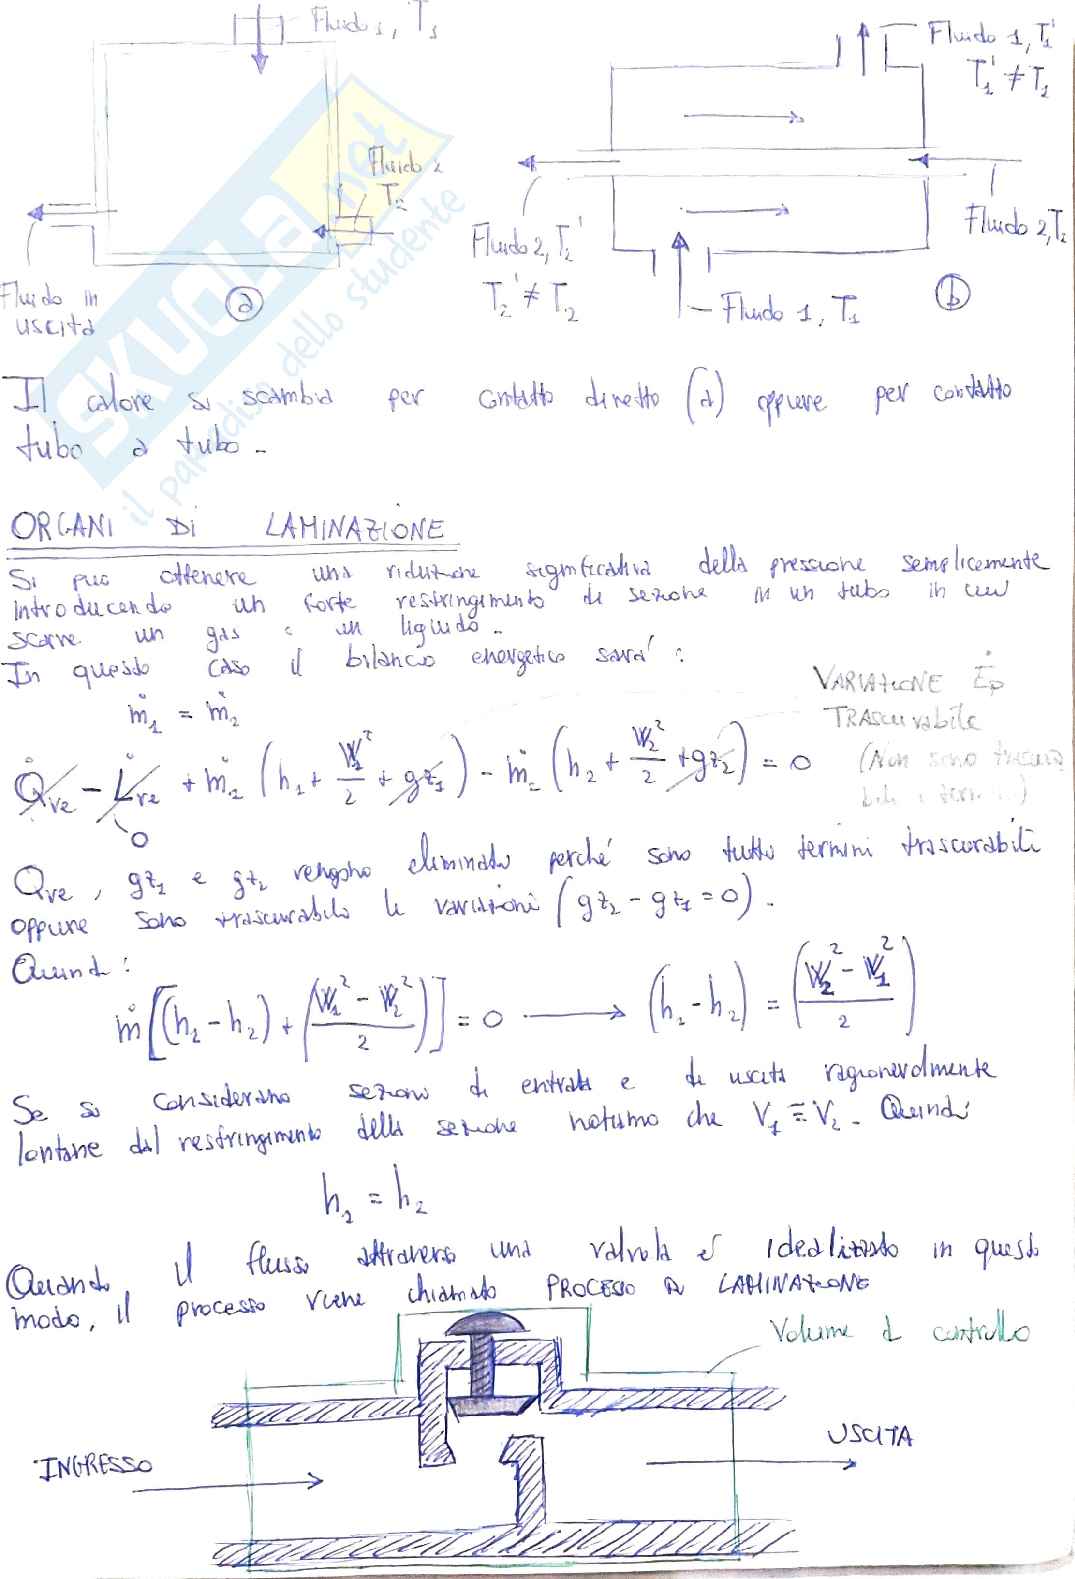 Fluido 1, T₁
Fluido 2
T₂
Fluido in
uscita
a
Fluido 1, T₁'
T₁' ≠ T₁
Fluido 2, T₂
Fluido 2, T₂'
T₂' ≠ T₂
Fluido 1, T₁
b
SKUOLA.net
il paradiso dello studente
Il calore si scambia per contatto diretto (a) oppure per contatto
tubo a tubo.
ORGANI DI LAMINAZIONE
Si può ottenere una riduzione significativa della pressione semplicemente
introducendo un forte restringimento di sezione in un tubo in cui
scorre un gas o un liquido.
In questo caso il bilancio energetico sarà:
ṁ₁ = ṁ₂
VARIAZIONE Ėp
TRASCURABILE
(Non sono trascura
bili i termini)
Q̇ve - L̇ve + ṁ₁ (h₁ + W₁²/2 + gz₁) - ṁ₂ (h₂ + W₂²/2 + gz₂) = 0
0
Qve, gz₁ e gz₂ vengono eliminati perché sono tutti termini trascurabili
oppure sono trascurabili le variazioni (gz₂ - gz₁ = 0).
Quindi:
ṁ[(h₁ - h₂) + (W₁² - W₂²/2)] = 0 → (h₁ - h₂) = (W₂² - W₁²/2)
Se si considerano sezioni di entrata e di uscita ragionevolmente
lontane dal restringimento della sezione notiamo che V₁ ≅ V₂. Quindi
h₁ = h₂
Quando il flusso attraverso una valvola è idealizzato in questo
modo, il processo viene chiamato PROCESSO DI LAMINAZIONE
Volume di controllo
INGRESSO
USCITA